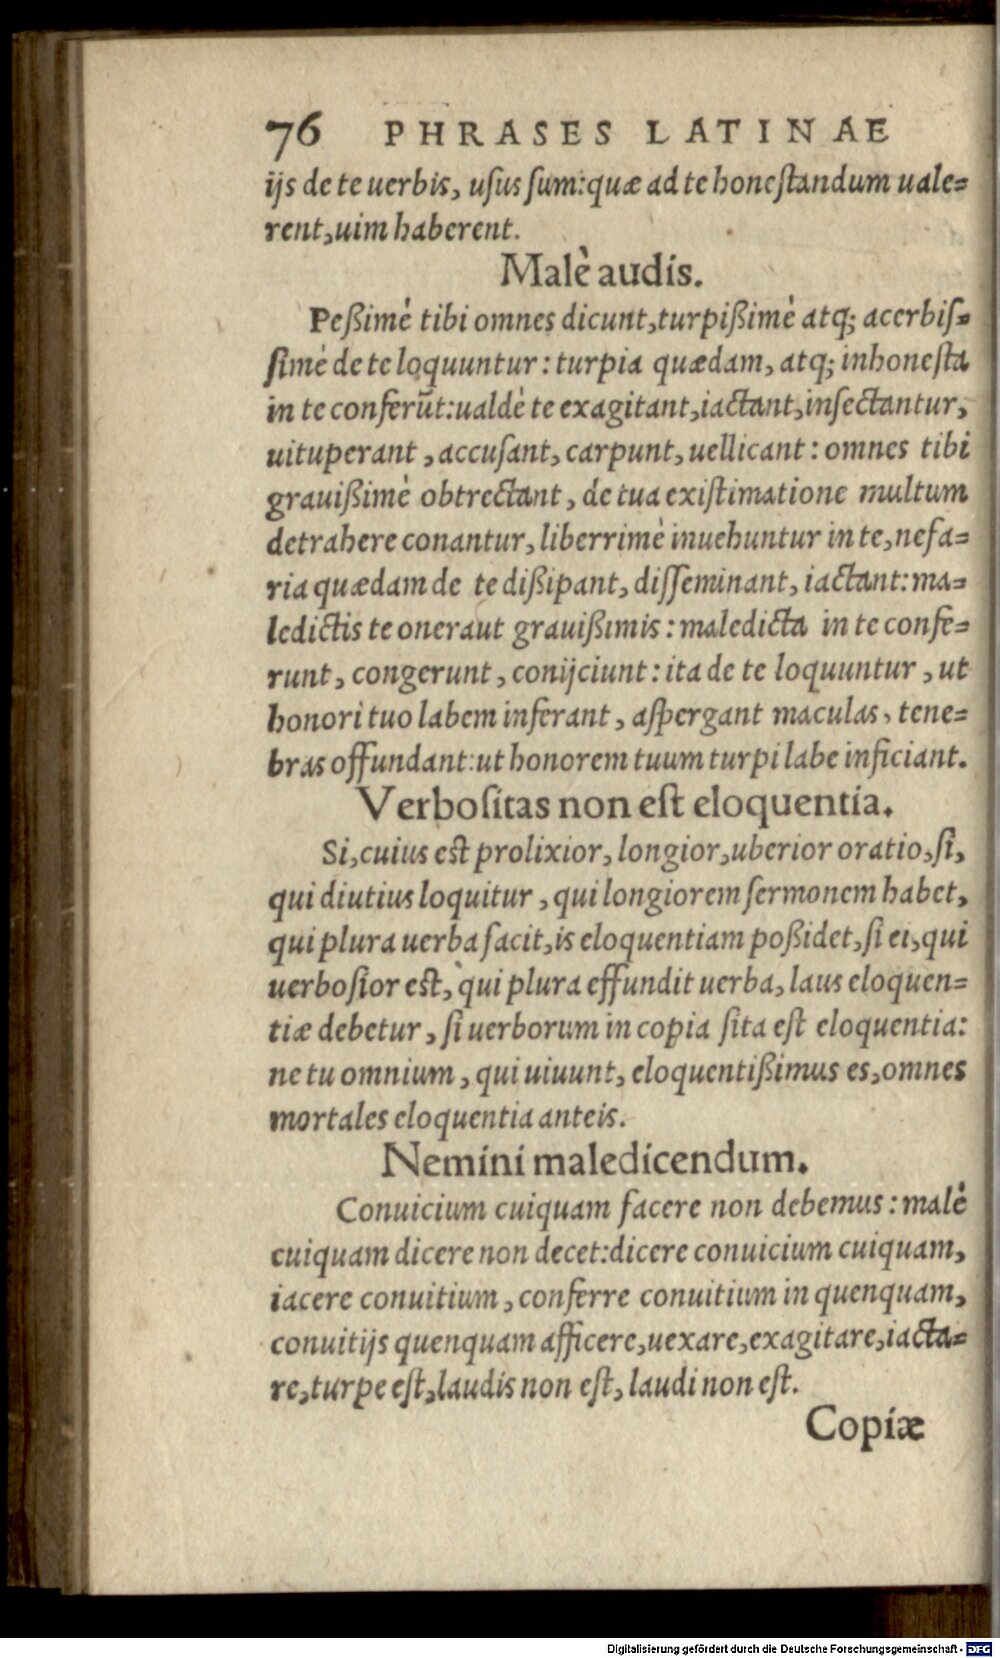 76 PHRASES LATINAE
ijs de te uerbis, usus sum: quæ ad te honestandum uale=
rent, uim haberent.
Malè audis.
Peßimè tibi omnes dicunt, turpißimè atq; acerbis=
simè de te loquuntur: turpia quædam, atq; inhonesta
in te conferũt: ualdè te exagitant, iactant, insectantur,
uituperant, accusant, carpunt, uellicant: omnes tibi
grauißimè obtrectant, de tua existimatione multum
detrahere conantur, liberrimè inuehuntur in te, nefa=
ria quædam de te dißipant, disseminant, iactant: ma=
ledictis te oneraut grauißimis: maledicta in te confe=
runt, congerunt, conijciunt: ita de te loquuntur, ut
honori tuo labem inferant, aspergant maculas, tene=
bras offundant: ut honorem tuum turpi labe inficiant.
Verbositas non est eloquentia.
Si, cuius est prolixior, longior, uberior oratio, si,
qui diutius loquitur, qui longiorem sermonem habet,
qui plura uerba facit, is eloquentiam poßidet, si ei, qui
uerbosior est, qui plura effundit uerba, laus eloquen=
tiæ debetur, si uerborum in copia sita est eloquentia:
ne tu omnium, qui uiuunt, eloquentißimus es, omnes
mortales eloquentia anteis.
Nemini maledicendum.
Conuicium cuiquam facere non debemus: malè
cuiquam dicere non decet: dicere conuicium cuiquam,
iacere conuitium, conferre conuitium in quenquam,
conuitijs quenquam afficere, uexare, exagitare, iacta=
re, turpe est, laudis non est, laudi non est.
Copiæ
Digitalisierung gefördert durch die Deutsche Forschungsgemeinschaft - DFG